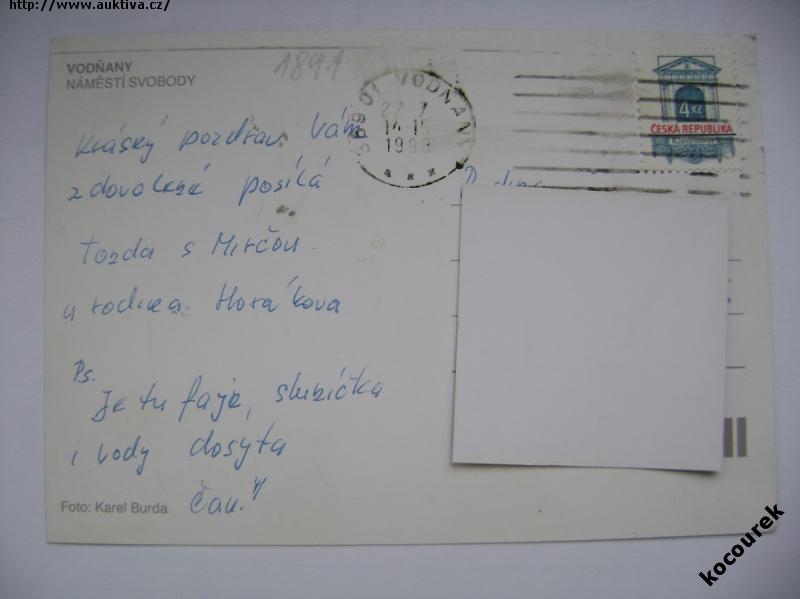 http://www.auktiva.cz/
VODŇANY
NÁMĚSTÍ SVOBODY
1891
389 01 VODŇANY
22.7
14-15
1998
4 Kč
ČESKÁ REPUBLIKA
Kráský pozdrav Vám
z dovolené posílá
Tonda s Mirčou.
a rodina Horákova
Ps.
Je tu fajn, sluníčka
i vody dosyta
čau."
Rodina
Foto: Karel Burda
kocourek